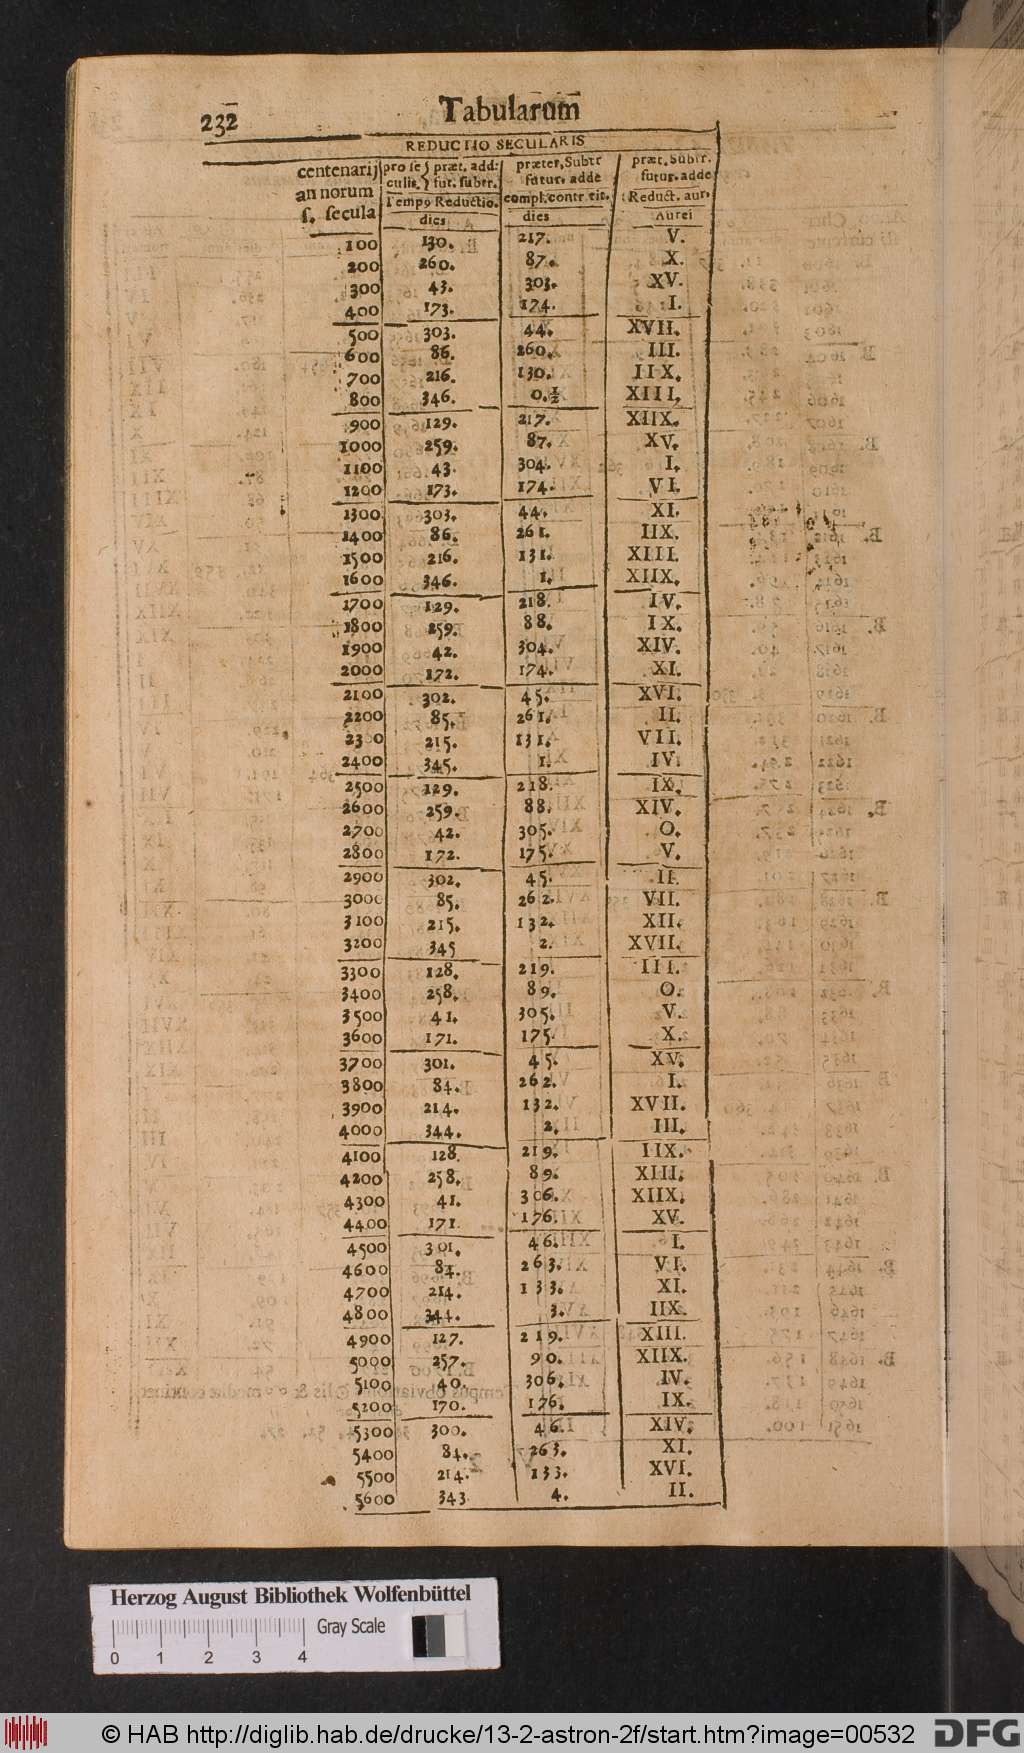 232
Tabularum
REDUCTIO SECULARIS
centenarij annorum s. secula | pro seculis. præt. add: fut. subtr. Tempo Reductio. dies | præter, Subtr futur. adde compl. contr. tit. dies | præt. Subtr. futur. adde Reduct. aur. Aurei
100 130. 217. V.
200 260. 87. X.
300 43. 303. XV.
400 173. 174. I.
500 303. 44. XVII.
600 86. 260. III.
700 216. 130. IIX.
800 346. 0.½ XIII.
900 129. 217. XIIX.
1000 259. 87. XV.
1100 43. 304. I.
1200 173. 174. VI.
1300 303. 44. XI.
1400 86. 261. IIX.
1500 216. 131. XIII.
1600 346. 1. XIIX.
1700 129. 218. IV.
1800 259. 88. IX.
1900 42. 304. XIV.
2000 172. 174. XI.
2100 302. 45. XVI.
2200 85. 261. II.
2300 215. 131. VII.
2400 345. 1. IV.
2500 129. 218. IX.
2600 259. 88. XIV.
2700 42. 305. O.
2800 172. 175. V.
2900 302. 45. II.
3000 85. 262. VII.
3100 215. 132. XII.
3200 345 2. XVII.
3300 128. 219. III.
3400 258. 89. O.
3500 41. 305. V.
3600 171. 175. X.
3700 301. 45. XV.
3800 84. 262. I.
3900 214. 132. XVII.
4000 344. 2. III.
4100 128. 219. IIX.
4200 258. 89. XIII.
4300 41. 306. XIIX.
4400 171. 176. XV.
4500 301. 46. I.
4600 84. 263. VI.
4700 214. 133. XI.
4800 344. 3. IIX.
4900 127. 219. XIII.
5000 257. 90. XIIX.
5100 40. 306. IV.
5200 170. 176. IX.
5300 300. 46. XIV.
5400 84. 263. XI.
5500 214. 133. XVI.
5600 343 4. II.
Herzog August Bibliothek Wolfenbüttel
Gray Scale
0 1 2 3 4
© HAB http://diglib.hab.de/drucke/13-2-astron-2f/start.htm?image=00532
DFG